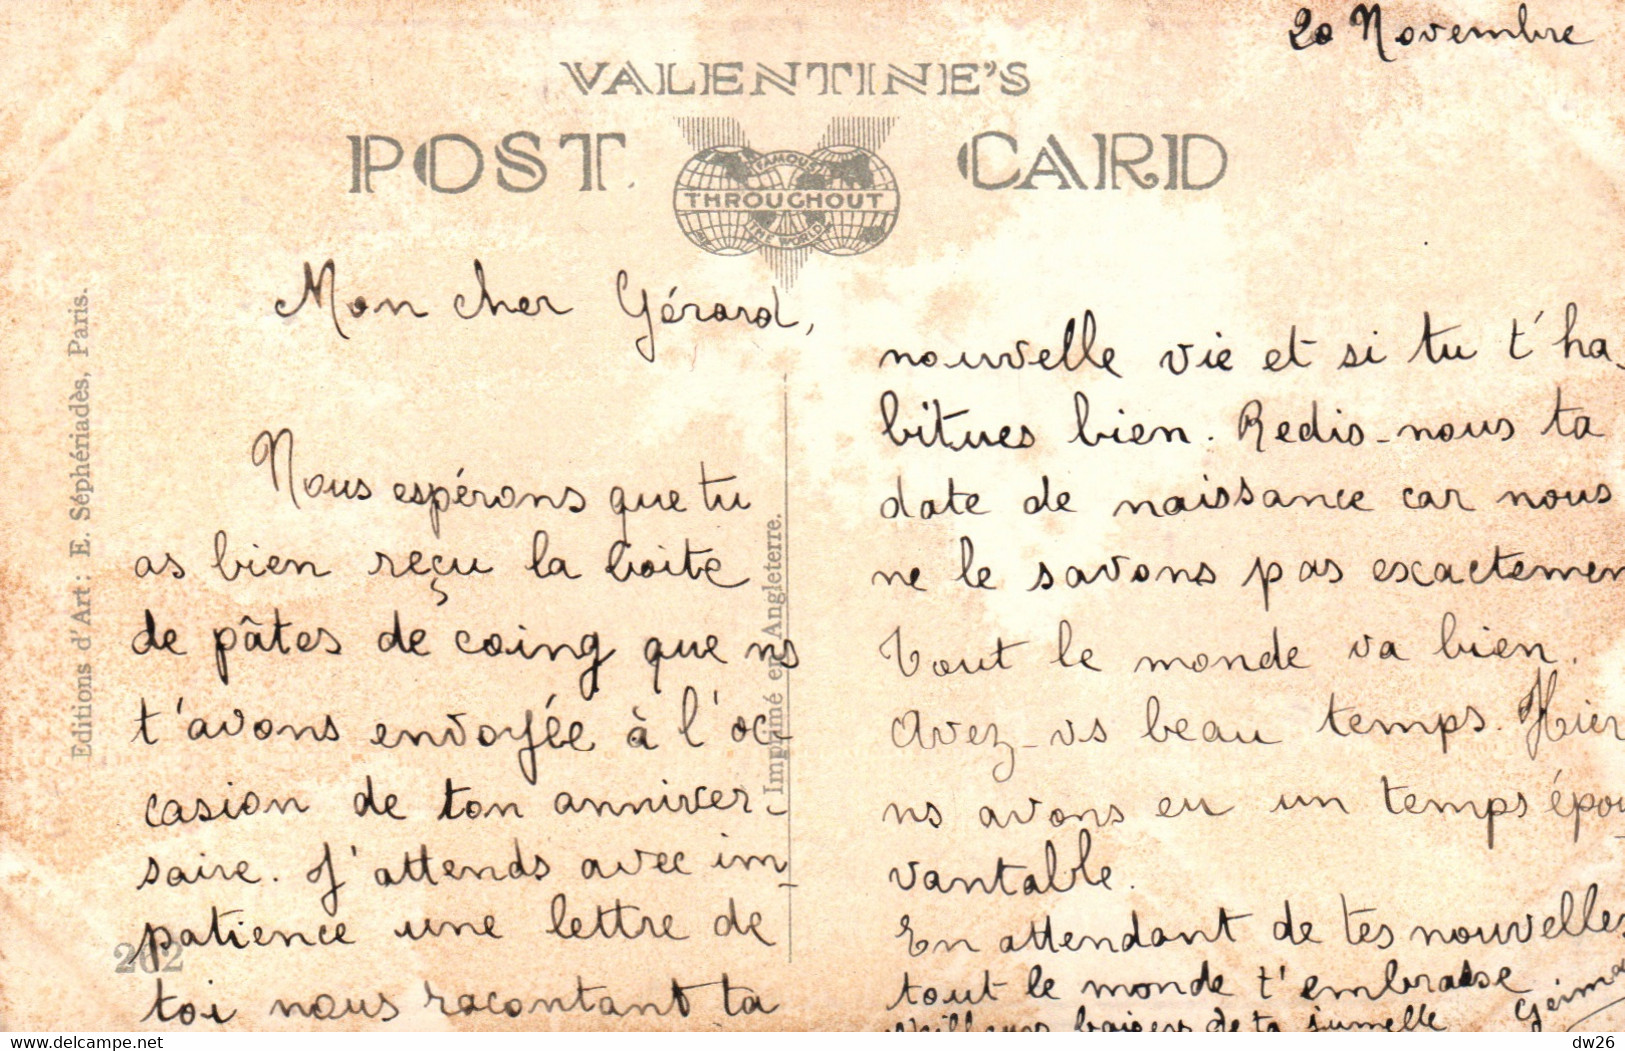 20 Novembre
VALENTINE'S
POST CARD
FAMOUS
THROUGHOUT
THE WORLD
Editions d'Art : E. Séphériadès, Paris.
Imprimé en Angleterre.
262
Mon cher Gérard,
Nous espérons que tu
as bien reçu la boite
de pâtes de coing que ns
t'avons envoyée à l'oc-
casion de ton anniver-
saire. J'attends avec im-
patience une lettre de
toi nous racontant ta
nouvelle vie et si tu t'ha-
bitues bien. Redis-nous ta
date de naissance car nous
ne le savons pas exactemen
Tout le monde va bien.
Avez-vs beau temps. Hier
ns avons eu un temps épou-
vantable.
En attendant de tes nouvelles
tout le monde t'embrasse
Meilleurs baisers de ta jumelle
dw26